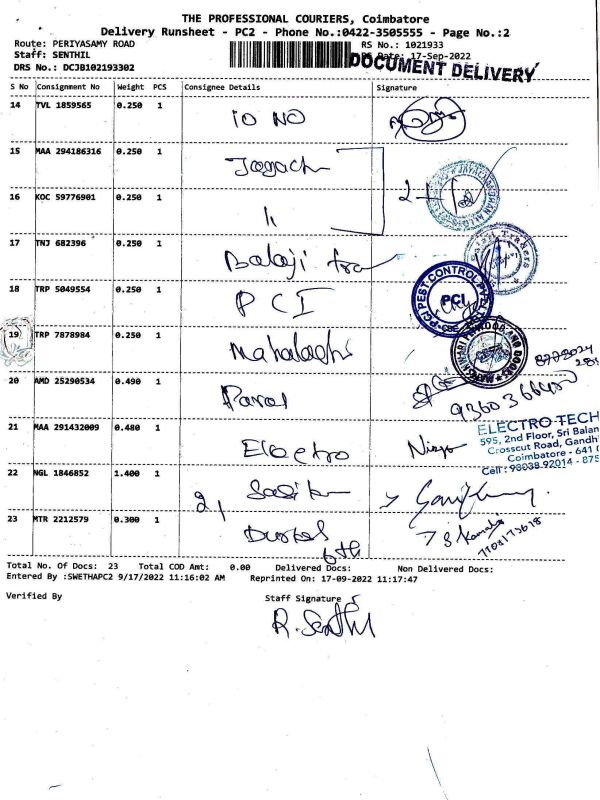 THE PROFESSIONAL COURIERS, Coimbatore
Delivery Runsheet - PC2 - Phone No.:0422-3505555 - Page No.:2
Route: PERIYASAMY ROAD
RS No.: 1021933
Staff: SENTHIL
RS Date: 17-Sep-2022
DRS No.: DCJB102193302
DOCUMENT DELIVERY
S No Consignment No Weight PCS Consignee Details Signature
14 TVL 1859565 0.250 1 IO NO
15 MAA 294186316 0.250 1
16 KOC 59776901 0.250 1 "
17 TNJ 682396 0.250 1 Balaji tra
18 TRP 5049554 0.250 1 PCI
PCI PEST CONTROL PVT LTD
PCI
CBE
19 TRP 7878984 0.250 1
20 AMD 25290534 0.490 1
21 MAA 291432009 0.480 1 Electro
ELECTRO TECH
595, 2nd Floor, Sri Balan
Crosscut Road, Gandh
Coimbatore - 641 0
Cell : 98038 92014 - 875
22 NGL 1846852 1.400 1
23 MTR 2212579 0.300 1
6th
Total No. Of Docs: 23 Total COD Amt: 0.00 Delivered Docs: Non Delivered Docs:
Entered By :SWETHAPC2 9/17/2022 11:16:02 AM Reprinted On: 17-09-2022 11:17:47
Verified By Staff Signature
R. Senthil